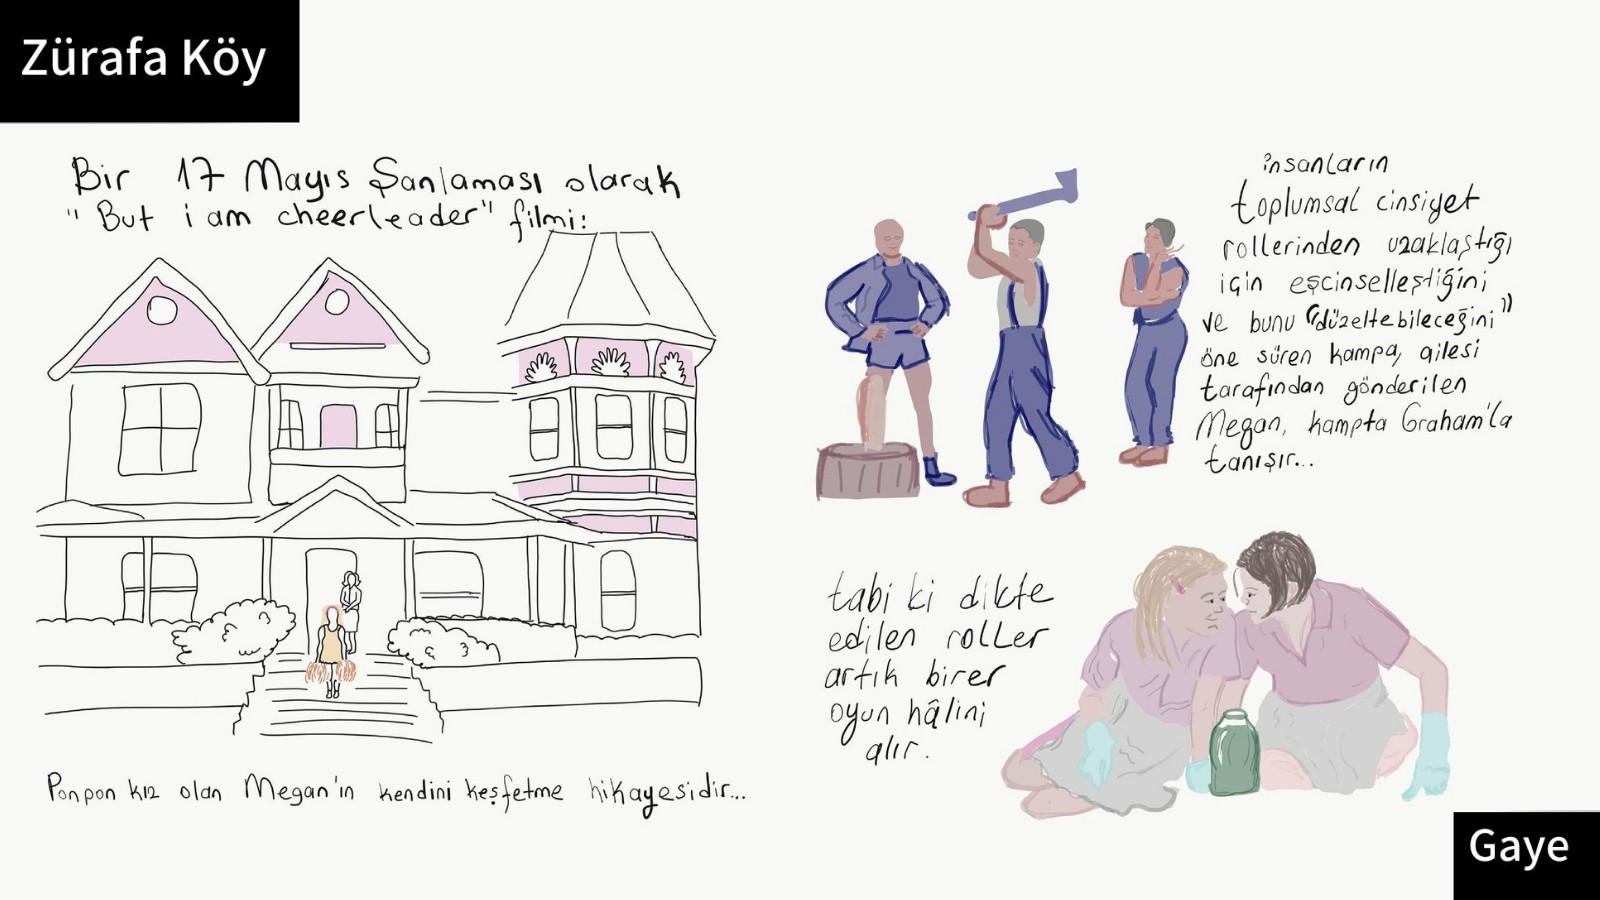 Zürafa Köy
Bir 17 Mayıs Şanlaması olarak
"But i am cheerleader" filmi:
Ponpon kız olan Megan'ın kendini keşfetme hikayesidir...
insanların
toplumsal cinsiyet
rollerinden uzaklaştığı
için eşcinselleştiğini
ve bunu "düzeltebileceğini"
öne süren kampa, ailesi
tarafından gönderilen
Megan, kampta Graham'la
tanışır...
tabi ki dikte
edilen roller
artık birer
oyun hâlini
alır.
Gaye